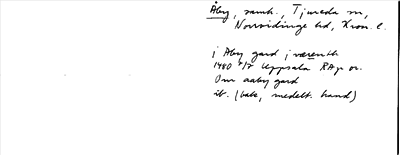 Åby, samh., Tjureda sn,
Norrvidinge hd, Kron. l.
i Aby gard i værenth
1480 7/7 Uppsala RAp or.
Om aaby gard
ib. (baks., medelt. hand)